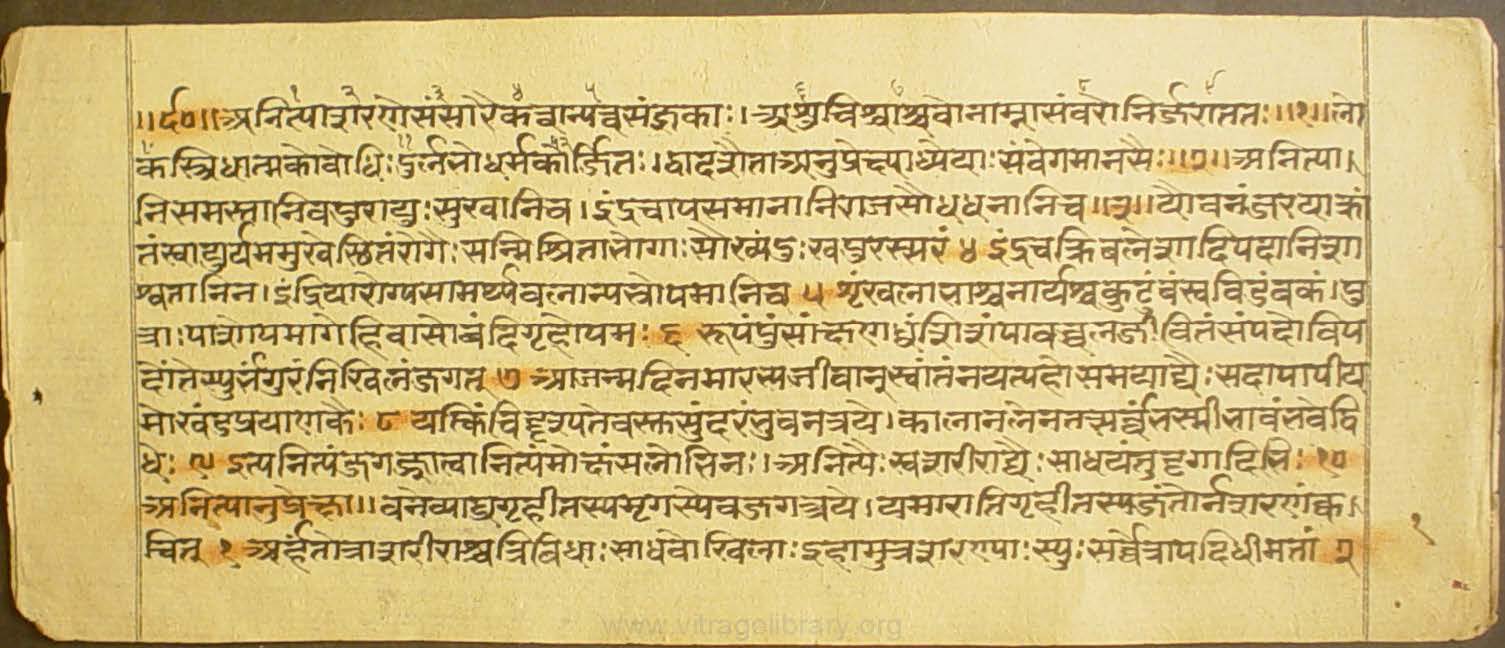 १ २ ३ ४ ५ ६ ७ ८ ९
॥र्द०॥अनित्याशरणेसंसारैकत्वान्यत्वसंज्ञकाः।अशुचिश्चाश्रवोनाम्नासंवरोनिर्जराततः॥१॥लो
कस्त्रिधात्मकोबोधिःदुर्लभोधर्मकोर्जितः।द्वादशैताअनुप्रेक्ष्याध्येयाःसंवेगमानसैः॥२॥अनित्या
निसमस्तानिवपुरायुःसुखानिच।इंद्रचापसमानानिराजसौधधनानिच॥३॥यौवनंजरयाक्रां
तंस्वायुर्यममुखेस्थितंरोगैःसन्मिश्रिताभोगाःसौख्यंदुःखपुरस्सरं ४ इंद्रचक्रिबलेशादिपदानिशा
श्वतानिन।इंद्रियारोग्यसामर्थ्यबलान्यभ्रोपमानिच ५ शृंखलाभाश्चनार्यश्चकुटुंबंस्वविडंबकं।पु
त्राःपाशोपमागेहेवासोबंदिगृहोपमः ६ रूपंपुंसांक्षणध्वंशिशंपावच्चलजीवितंसंपदोविप
दोंतेस्युर्भंगुरंनिखिलंजगत् ७ आजन्मदिनमारभ्यजीवान्स्वांतंनयत्यहोसमयाद्यैःसदापापीय
मोखंडप्रयाणकैः ८ यत्किंचिद्दृश्यतेवस्तुसुंदरंभुवनत्रये।कालानलेनतत्सर्व्वंभस्मीभावंभवेद्वि
धेः ९ इत्यनित्यंजगज्ज्ञात्वानित्यंमोक्षंसलोभिनः।अनित्यैःस्वशरीराद्यैःसाधयंतुदृगादिभिः १०
अनित्यानुप्रेक्षा॥वनेव्याघ्रगृहीतस्यमृगस्येवजगत्त्रये।यमारातिगृहीतस्यजंतोर्नशरणंक्व
चित् १ अर्हंतोत्राशरीराश्चत्रिविधाःसाधवोखिलाःइहामुत्रशरण्याःस्युःसर्व्वत्रापदिधीमतां २
१
www.vitragelibrary.org